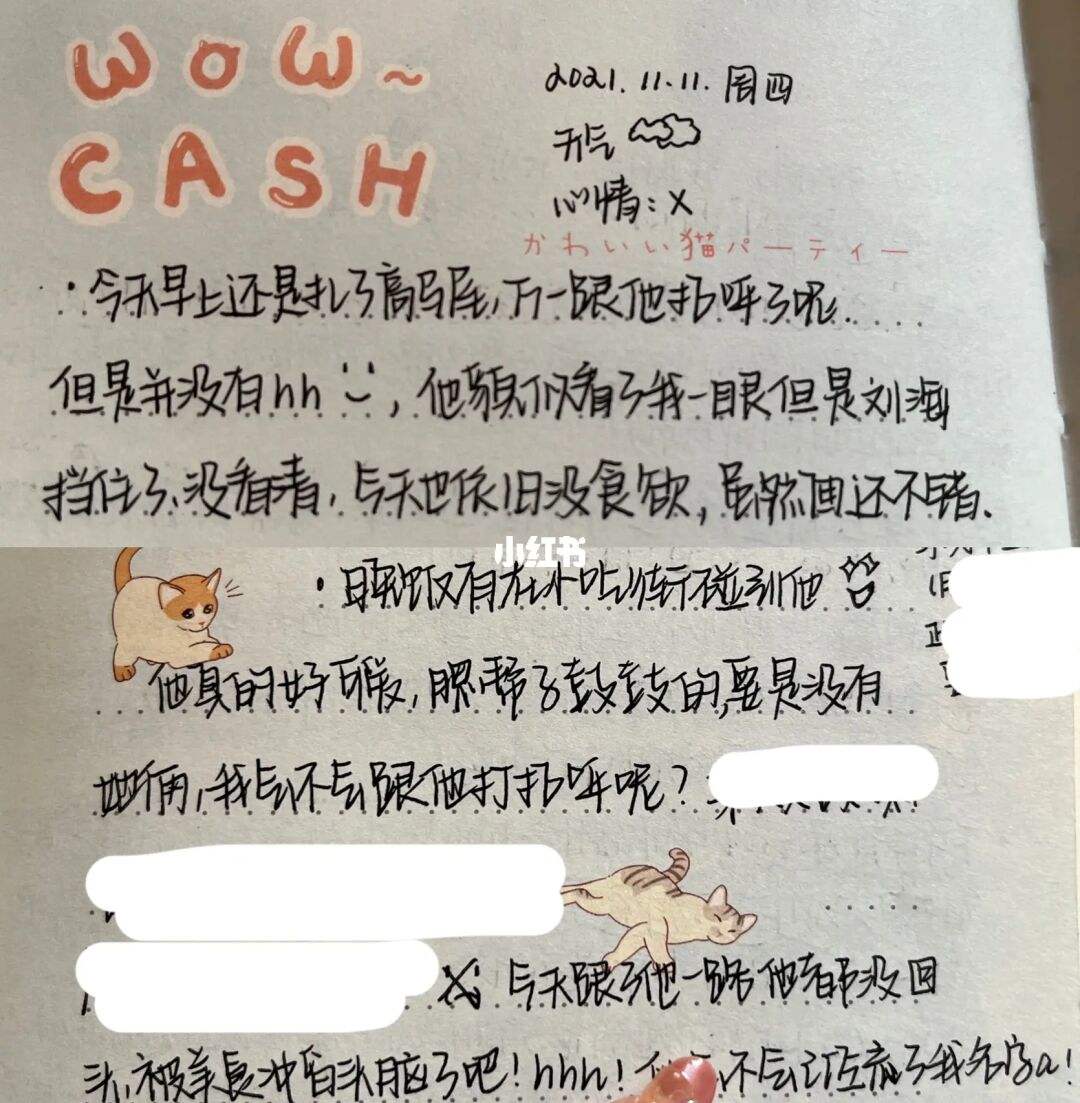 WOW~
CASH
2021.11.11.周四
天气
心情：X
かわいい猫パーティー
·今天早上还是扎了高马尾，万一跟他打招呼了呢.
但是并没有hh，他貌似看了我一眼但是刘海
挡住了、没看清，今天也依旧没食欲，虽然画还不错.
小红书
·晚饭有在小吃街碰到他
他真的好可爱，腮帮子鼓鼓的，要是没有
她俩，我会不会跟他打招呼呢？
今天跟了他一路他都没回
头，被美色冲昏头脑了吧！hhh！不会记住我名字a！